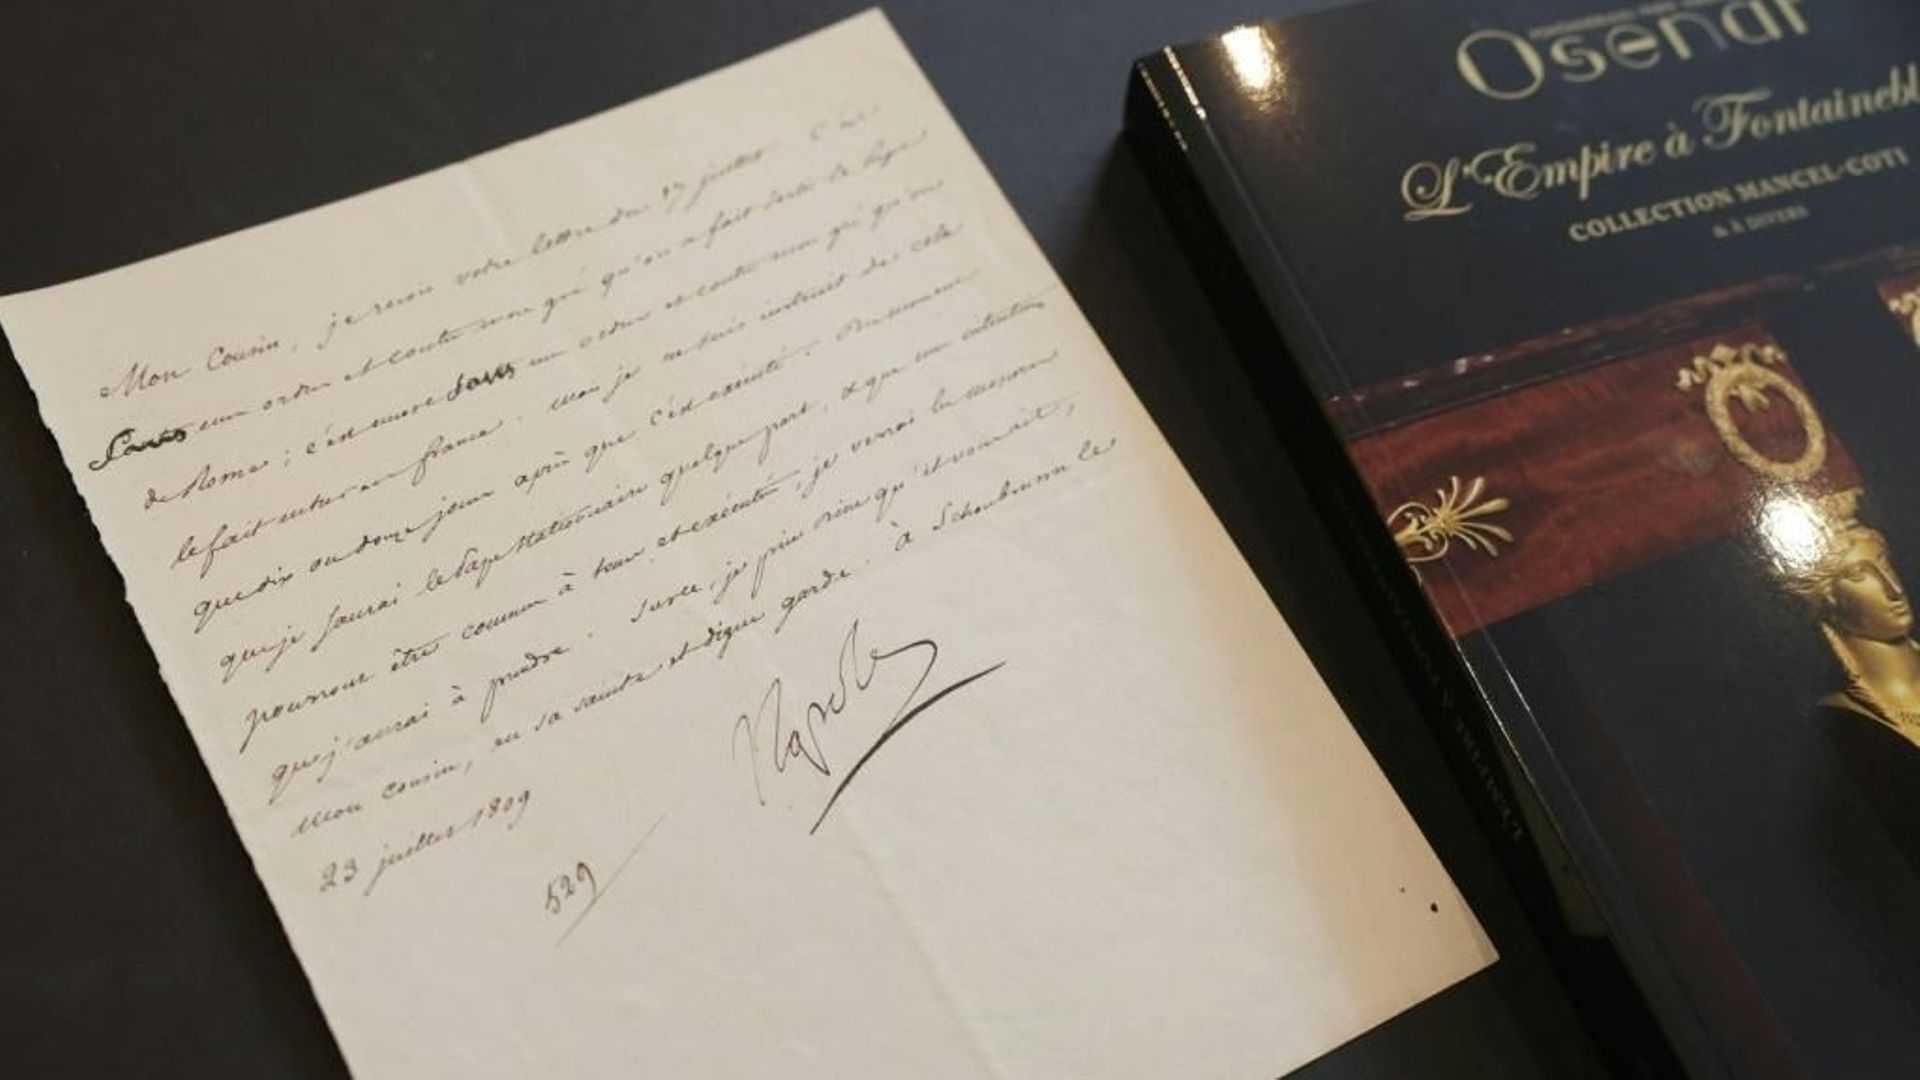 Mon Cousin, je reçois votre lettre du 17 juillet. C'est
sans mon ordre et contre mon gré qu'on a fait sortir le Pape
de Rome; c'est encore sans mon ordre et contre mon gré qu'on
le fait entrer en france. Mais je ne suis instruit de cela
que dix ou douze jours après que c'est exécuté. Du moment
que je saurai le Pape stationnaire quelque part, et que mes intentions
pourront être connues à tems et exécutées, je verrai les mesures
que j'aurai à prendre. Sur ce, je prie Dieu qu'il vous ait,
mon cousin, en sa sainte et digne garde. à Schoenbrunn le
23 juillet 1809
Napole
529
Osenat
L'Empire à Fontainebl
COLLECTION MANCEL-COTI
& À DIVERS